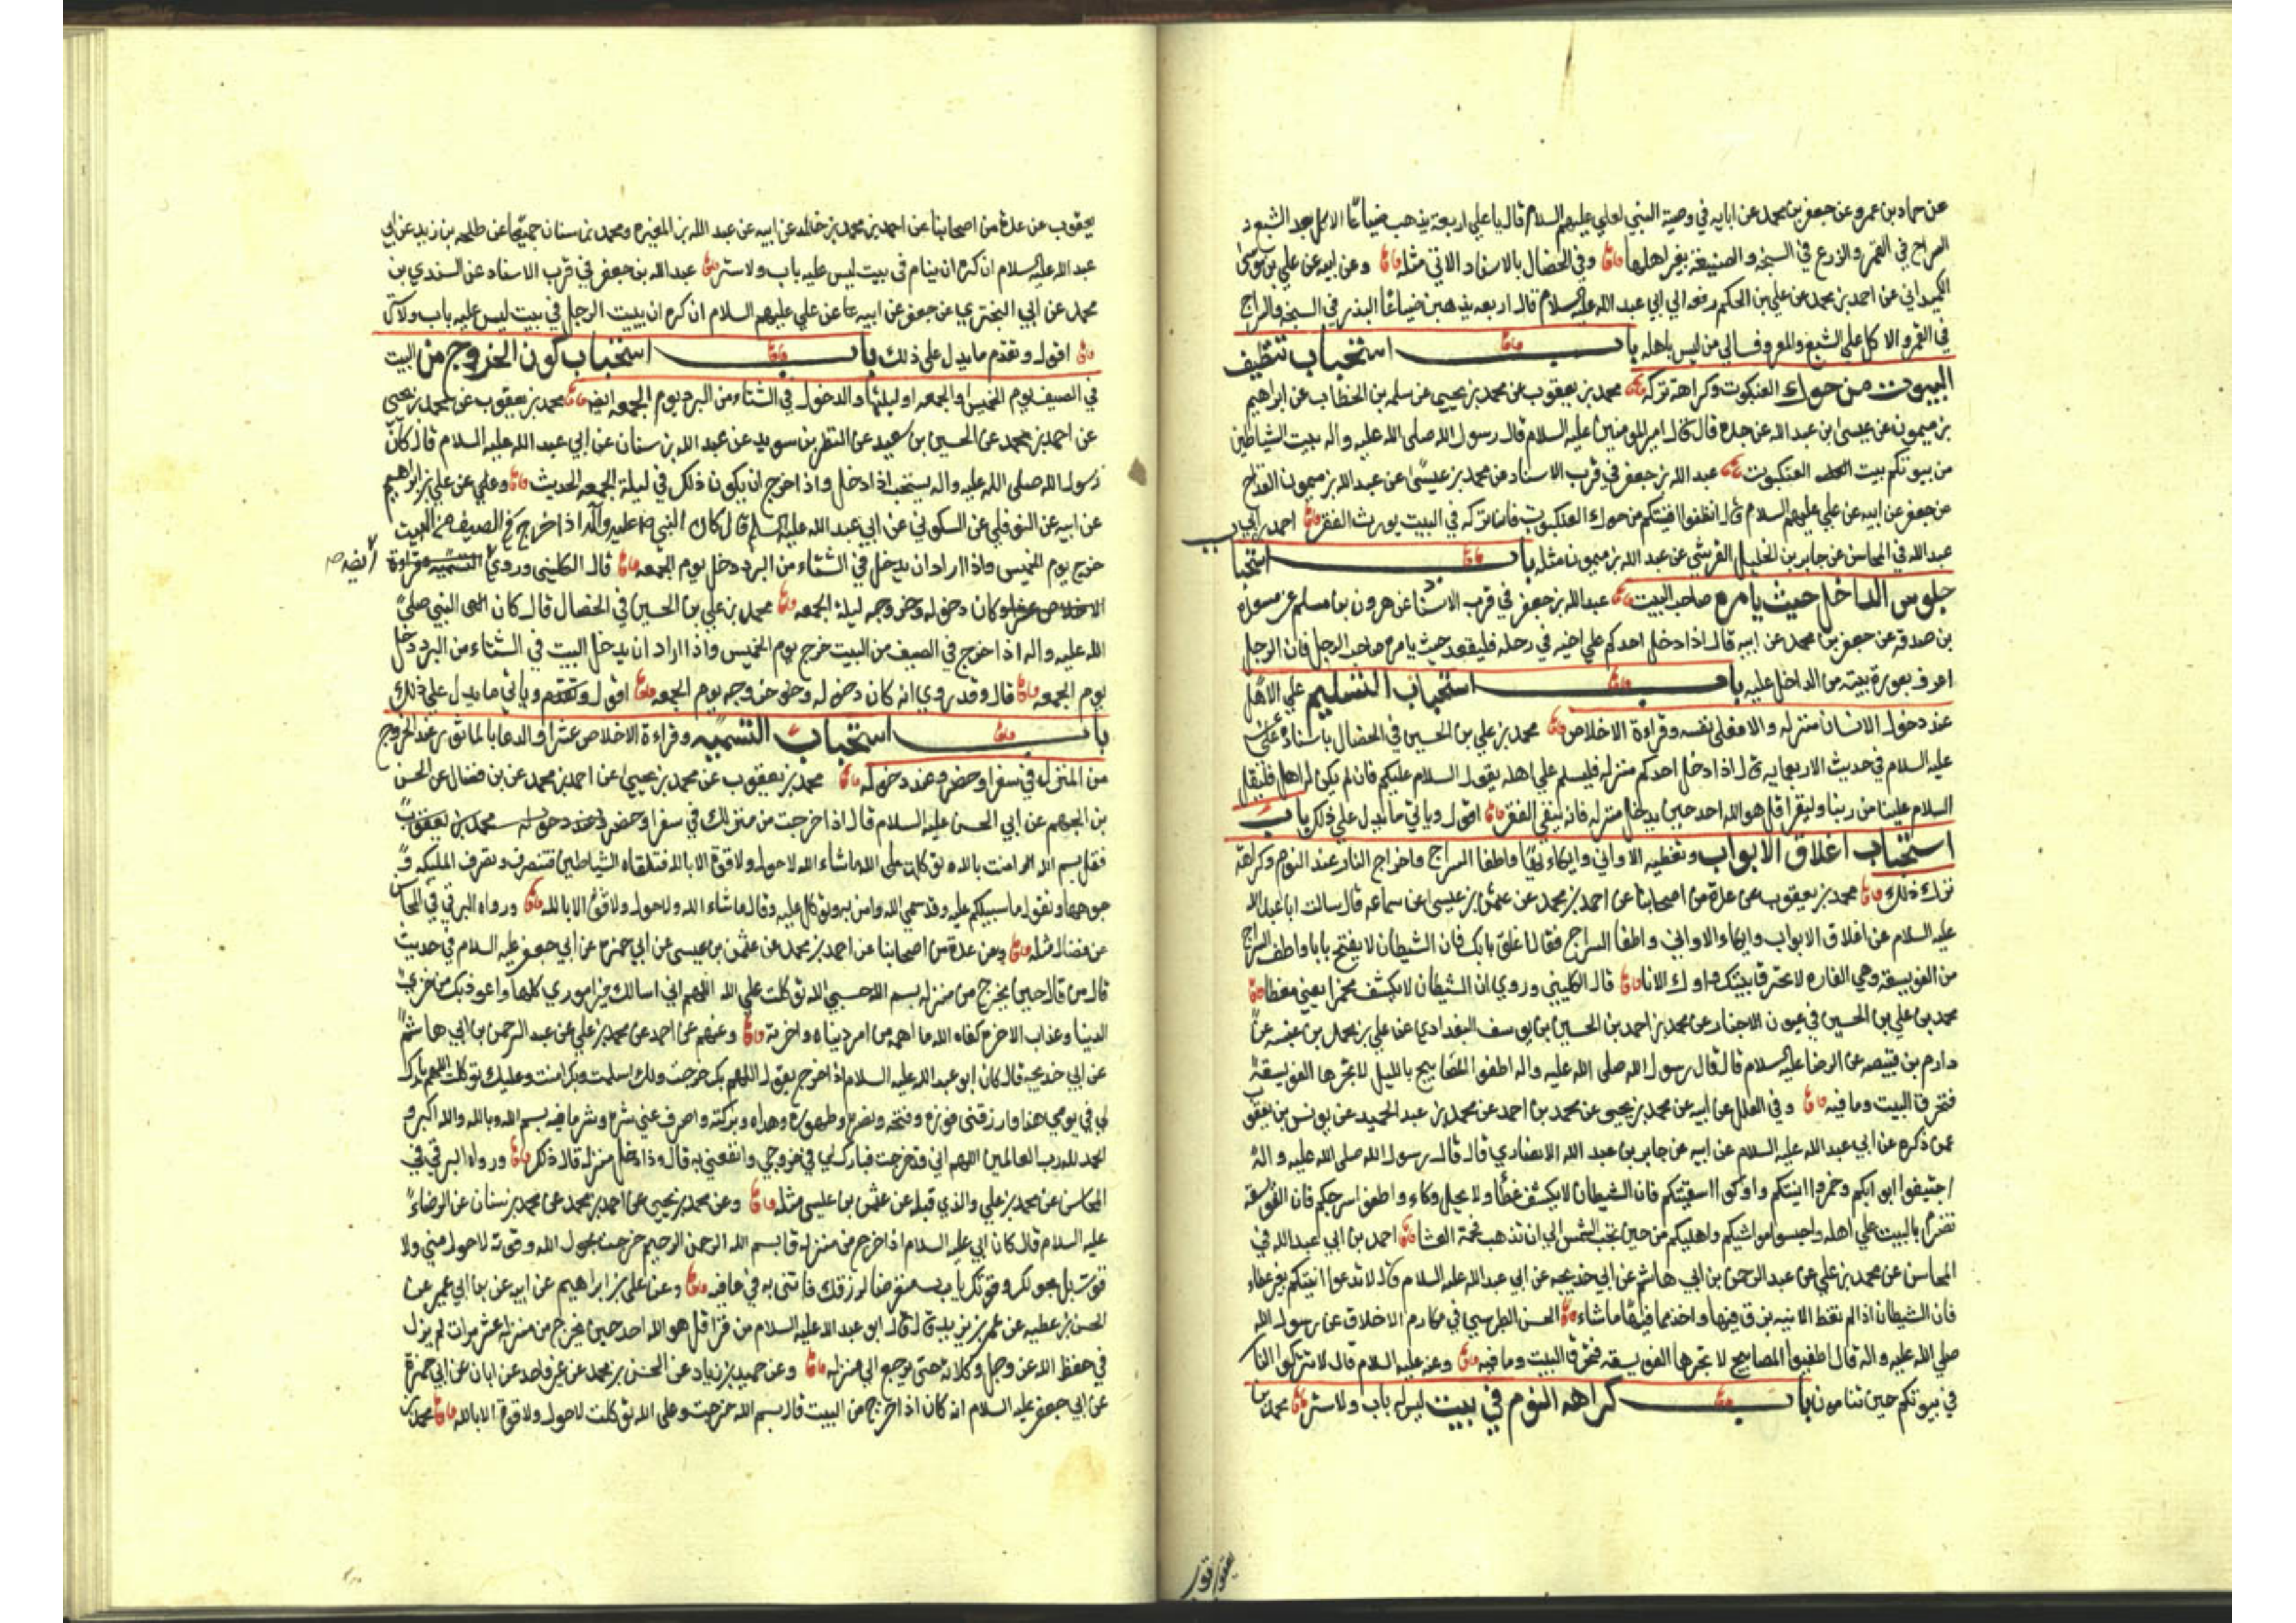 عن حماد بن عمرو عن جعفر بن محمد عن ابايه في وصية النبي لعلي عليهم السلام قال يا علي اربعة يذهب ضياعًا الاكل بعد الشبع و
السراج في القمر والزرع في السبخه والصنيعة بغير اهلها وفي الخصال بالاسناد الاتي مثله وعن ابيه عن علي بن موسى
الكميداني عن احمد بن محمد عن علي بن الحكم رفعه الي ابي عبد الله عليه السلام قال اربعه يذهبن ضياعًا البذر في السبخه والسراج
في القمر والاكل علي الشبع والمعروف الي من ليس باهله باب استحباب تنظيف
البيوت من حوك العنكبوت وكراهة تركه محمد بن يعقوب عن محمد بن يحيى عن سلمه بن الخطاب عن ابراهيم
بن ميمون عن عيسى بن عبد الله عن جده قال قال امير المومنين عليه السلام قال رسول الله صلى الله عليه واله بيت الشياطين
من بيوتكم بيت العنكبوت عبد الله بن جعفر في قرب الاسناد عن محمد بن عيسى عن عبد الله بن ميمون القداح
عن جعفر عن ابيه عن علي عليهم السلام قال نظفوا افنيتكم من حوك العنكبوت فان تركه في البيت يورث الفقر احمد بن ابي
عبد الله في المحاسن عن جابر بن الخليل القرشي عن عبد الله بن ميمون مثله باب استحبا
جلوس الداخل حيث يامره صاحب البيت عبد الله بن جعفر في قرب الاسنا عن هرون بن مسلم عن مسعده
بن صدقه عن جعفر بن محمد عن ابيه قال اذا دخل احدكم علي اخيه في رحله فليقعد حيث يامر صاحب الرحل فان الرجل
اعرف بعورة بيته من الداخل عليه باب استحباب التسليم علي الاهل
عند دخول الانسان منزله والا فعلى نفسه وقراءة الاخلاص محمد بن علي بن الحسين في الخصال باسناده عن علي
عليه السلام في حديث الاربعمايه قال اذا دخل احدكم منزله فليسلم علي اهله يقول السلام عليكم فان لم يكن له اهل فليقل
السلام علينا من ربنا وليقرا قل هو الله احد حين يدخل منزله فانه ينفي الفقر اقول وياتي ما يدل علي ذلك باب
استحباب اغلاق الابواب وتغطيه الاواني وايكاءها واطفا السراج واخراج النار عند النوم وكراهة
ترك ذلك محمد بن يعقوب عن عدة من اصحابنا عن احمد بن محمد عن عثمن بن عيسى عن سماعه قال سالت ابا عبد الله
عليه السلام عن اغلاق الابواب وايكاء الاواني واطفا السراج فقال اغلق بابك فان الشيطان لا يفتح بابا واطف السراج
من الفويسقة وهي الفاره لا تحترق بيتك واوك الانا قال الكليني وروي ان الشيطان لا يكشف مخمرا يعني مغطا
محمد بن علي بن الحسين في عيون الاخبار عن محمد بن احمد بن الحسين بن يوسف البغدادي عن علي بن محمد بن عنبسه عن
دارم بن قبيصه عن الرضا عليه السلام قال قال رسول الله صلى الله عليه واله اطفوا المصابيح بالليل لا تجرها الفويسقة
فتحرق البيت وما فيه وفي العلل عن ابيه عن محمد بن يحيى عن محمد بن احمد عن محمد بن عبد الحميد عن يونس بن يعقوب
عمن ذكره عن ابي عبد الله عليه السلام عن ابيه عن جابر بن عبد الله الانصاري قال قال رسول الله صلى الله عليه واله
اجيفوا ابوابكم وخمروا انيتكم واوكوا اسقيتكم فان الشيطان لا يكشف غطأ ولا يحل وكاء واطفوا سرجكم فان الفويسقه
تضرم بالبيت علي اهله واحبسوا مواشيكم واهليكم من حين تجب الشمس الي ان تذهب فحمة العشا احمد بن ابي عبد الله في
المحاسن عن محمد بن علي عن عبد الرحمن بن ابي هاشم عن ابي خديجه عن ابي عبد الله عليه السلام قال لا تدعوا انيتكم بغير غطاء
فان الشيطان اذا لم تغط الانيه بزق فيها واخذ مما فيها ما شاء الحسن الطبرسي في مكارم الاخلاق عن رسول الله
صلي الله عليه واله قال اطفيوا المصابيح لا تجرها الفويسقه فتحرق البيت وما فيه وعنه عليه السلام قال لا تتركوا النار
في بيوتكم حين تنامون باب كراهه النوم في بيت ليس له باب ولا ستر محمد بن
يعقوب
يعقوب عن عدة من اصحابنا عن احمد بن محمد بن خالد عن ابيه عن عبد الله بن المغيره ومحمد بن سنان جميعًا عن طلحه بن زيد عن ابي
عبد الله عليه السلام انه كره ان ينام في بيت ليس عليه باب ولا ستر عبد الله بن جعفر في قرب الاسناد عن السندي بن
محمد عن ابي البختري عن جعفر عن ابيه عن علي عليهم السلام انه كره ان يبيت الرجل في بيت ليس عليه باب ولا ستر
اقول وتقدم ما يدل على ذلك باب استحباب كون الخروج من البيت
في الصيف يوم الخميس والجمعه او ليلتها والدخول في الشتاء من البرد يوم الجمعه محمد بن يعقوب عن محمد بن يحيي
عن احمد بن محمد عن الحسين بن سعيد عن النظر بن سويد عن عبد الله بن سنان عن ابي عبد الله عليه السلام قال كان
رسول الله صلى الله عليه واله يستحب اذا دخل واذا خرج ان يكون ذلك في ليلة الجمعه الحديث وعن علي بن ابراهيم
عن ابيه عن النوفلي عن السكوني عن ابي عبد الله عليه السلم قال كان النبي ص عليه واله اذا خرج في الصيف من البيت
خرج يوم الخميس واذا اراد ان يدخل في الشتاء من البرد دخل يوم الجمعه قال الكليني وروي
كان دخوله وخروجه ليلة الجمعه محمد بن علي بن الحسين في الخصال قال كان النبي صلى
الله عليه واله اذا خرج في الصيف من البيت خرج يوم الخميس واذا اراد ان يدخل البيت في الشتاء من البرد دخل
يوم الجمعه قال وقد روي انه كان دخوله وخروجه يوم الجمعه اقول وتقدم وياتي ما يدل علي ذلك
باب استحباب التسميه وقراءة الاخلاص عشرا والدعا بالماثور عند الخروج
من المنزل في سفر او حضر وعند دخوله محمد بن يعقوب عن محمد بن يحيى عن احمد بن محمد عن بن فضال عن الحسن
بن الجهم عن ابي الحسن عليه السلام قال اذا خرجت من منزلك في سفر او حضر
فقل بسم الله امنت بالله توكلت على الله ما شاء الله لا حول ولا قوة الا بالله فتلقاه الشياطين فتنصرف وتضرب المليكه
وجوهها وتقول ما سبيلكم عليه وقد سمي الله وامن به وتوكل عليه وقال ما شاء الله ولا حول ولا قوة الا بالله ورواه البرقي في المحاسن
عن فضال مثله وعن عدة من اصحابنا عن احمد بن محمد عن عثمن بن عيسى عن ابي حمزه عن ابي جعفر عليه السلام في حديث
قال من قال حين يخرج من منزله بسم الله حسبي الله توكلت على الله اللهم اني اسالك خير اموري كلها واعوذ بك من خزي
الدنيا وعذاب الاخره كفاه الله ما اهمه من امر دنياه واخرته وعنهم عن احمد عن محمد بن علي عن عبد الرحمن بن ابي هاشم
عن ابي خديجه قال كان ابو عبد الله عليه السلام اذا خرج يقول اللهم بك خرجت ولك اسلمت وبك امنت وعليك توكلت اللهم بارك
لي في يومي هذا وارزقني فوزه وفتحه ونصره وطهوره وهداه وبركته واصرف عني شره وشر ما فيه بسم الله وبالله والله اكبر و
الحمد لله رب العالمين اللهم اني قد خرجت فبارك لي في خروجي وانفعني به قال واذا دخل منزله قال ذلك ورواه البرقي في
المحاسن عن محمد بن علي والذي قبله عن عثمن بن عيسى مثله وعن محمد بن يحيى عن احمد بن محمد عن محمد بن سنان عن الرضا
عليه السلام قال كان ابي عليه السلام اذا خرج من منزله قال بسم الله الرحمن الرحيم خرجت بحول الله وقوته لا حول مني ولا
قوت بل بحولك وقوتك يا رب متعرضا لرزقك فاتني به في عافيه وعن علي بن ابراهيم عن ابيه عن بن ابي عمير عن
الحسن بن عطيه عن عمر بن يزيد قال قال ابو عبد الله عليه السلام من قرا قل هو الله احد حين يخرج من منزله عشر مرات لم يزل
في حفظ الله عز وجل وكلائه حتى يرجع الي منزله وعن حميد بن زياد عن الحسن بن محمد عن غير واحد عن ابان عن ابي حمزة
عن ابي جعفر عليه السلام انه كان اذا خرج من البيت قال بسم الله خرجت وعلى الله توكلت لا حول ولا قوة الا بالله محمد بن